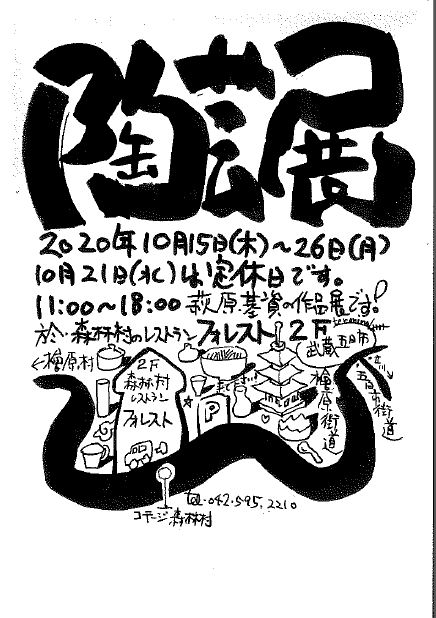 陶芸展
2020年10月15日(木)~26日(月)
10月21日(水)は定休日です。
11:00~18:00 萩原基資の作品展です!
於・森林村のレストラン フォレスト 2F
←檜原村
2F
森林村
レストラン
フォレスト
P
武蔵五日市
檜原街道
五日市街道
tel・042.595.2210
コテージ森林村